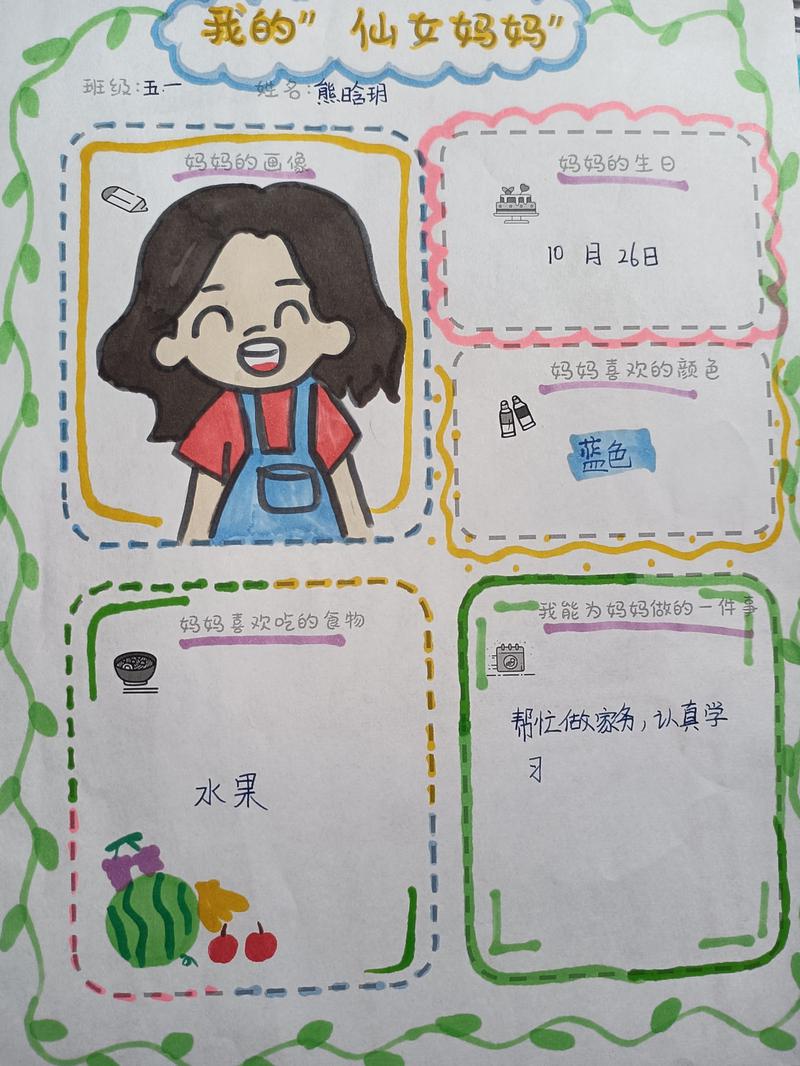 我的”仙女妈妈”
班级:五.一 姓名:熊晗玥
妈妈的画像
妈妈的生日
10月26日
妈妈喜欢的颜色
蓝色
妈妈喜欢吃的食物
水果
我能为妈妈做的一件事
帮忙做家务,认真学
习